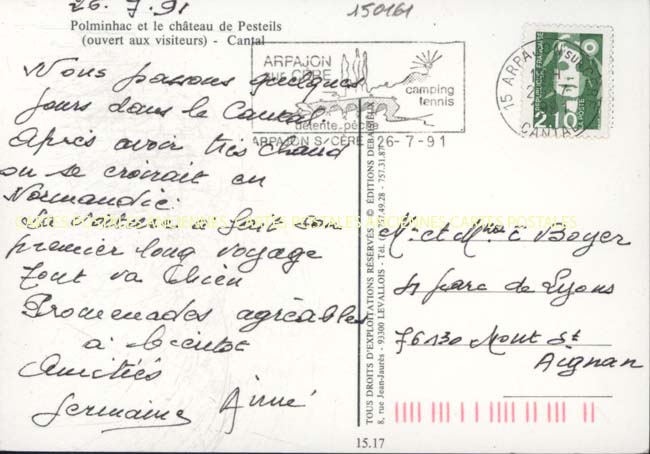 26.7.91
150161
Polminhac et le château de Pesteils
(ouvert aux visiteurs) - Cantal
ARPAJON
SUR CERE
camping
tennis
détente, pêche
ARPAJON S/CERE 26-7-91
15 ARPAJON SUR
CANTAL
REPUBLIQUE FRANÇAISE
2,10
LA POSTE
Nous passons quelques
jours dans le Cantal
Après avoir très chaud
on se croirait en
Normandie.
La voiture a fait son
premier long voyage
Tout va bien
Promenades agréables
à bientôt
Amitiés
Germaine Aimé
CARTES POSTALES ANCIENNES CARTES POSTALES
TOUS DROITS D'EXPLOITATIONS RÉSERVÉS - © ÉDITIONS DEBAISIEUX
8, rue Jean-Jaurès - 93300 LEVALLOIS - Tél. 757.49.28 - 757.31.87
Mr et Mme Boyer
parc de Lyons
76130 Mont St
Aignan
15.17